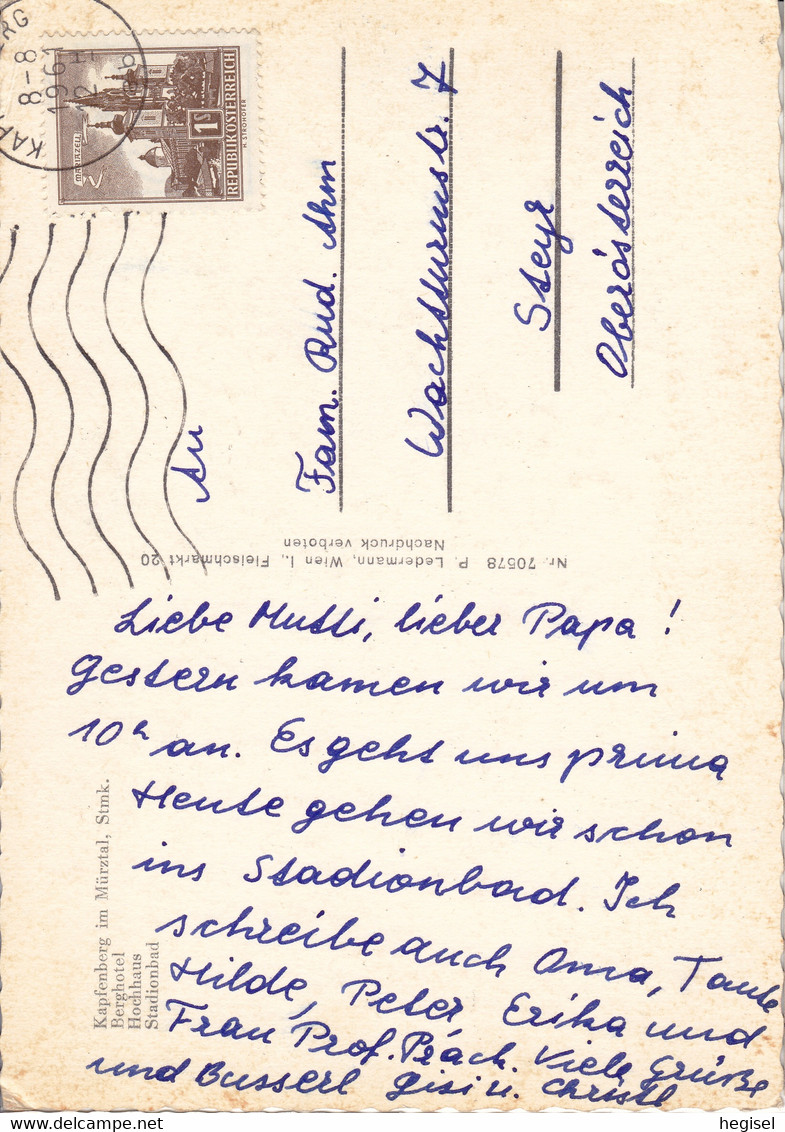 KAPFENBERG
8-8
1961
MARIAZELL
1S
REPUBLIK ÖSTERREICH
H. STROHOFER
An
Fam. Rud. Ahm
Wachtturmstr. 7
Steyr
Oberösterreich
Nr. 70578 P. Ledermann, Wien I., Fleischmarkt 20
Nachdruck verboten
Kapfenberg im Mürztal, Stmk.
Berghotel
Hochhaus
Stadionbad
Liebe Mutti, lieber Papa!
Gestern kamen wir um
10h an. Es geht uns prima
Heute gehen wir schon
ins Stadionbad. Ich
schreibe auch Oma, Tante
Hilde, Peter Erika und
Frau Prof. Präch. Viele Grüße
und Busserl Gisi u. Christl
hegisel